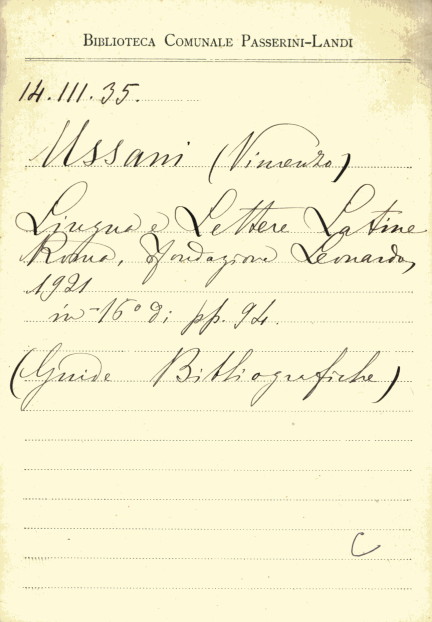 BIBLIOTECA COMUNALE PASSERINI-LANDI
14.III.35.
Ussani (Vincenzo)
Lingua e Lettere Latine
Roma, Fondazione Leonardo,
1921
in-16° di pp. 94.
(Guide Bibliografiche)
C